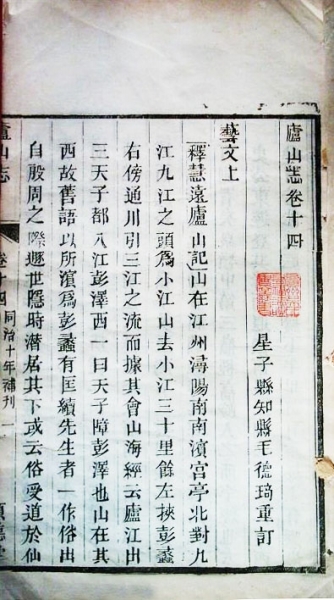 廬山志卷十四
星子縣知縣毛德琦重訂
藝文上
釋慧遠廬山記山在江州潯陽南南濱宮亭北對九
江九江之頭爲小江山去小江三十里餘左挾彭蠡
右傍通川引三江之流而據其會山海經云廬江出
三天子都入江彭澤西一曰天子障彭澤也山在其
西故舊語以所濱爲彭蠡有匡續先生者一作俗出
自殷周之際遯世隱時潛居其下或云俗受道於仙
廬山志
卷十四
同治十年補刊
一
順德堂